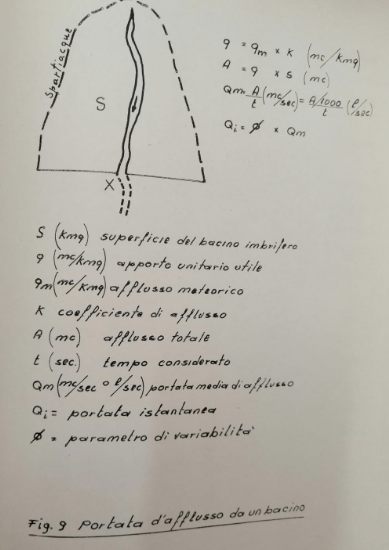 Spartiacque
S
X
q = qm x K (mc/Kmq)
A = q x s (mc)
Qm = A/t (mc/sec) = A/1000/t (l/sec)
Qi = ø x Qm
S (Kmq) superficie del bacino imbrifero
q (mc/Kmq) apporto unitario utile
qm (mc/Kmq) afflusso meteorico
K coefficiente di afflusso
A (mc) afflusso totale
t (sec.) tempo considerato
Qm (mc/sec o l/sec) portata media di afflusso
Qi = portata istantanea
ø = parametro di variabilità
Fig. 9 Portata d'afflusso da un bacino